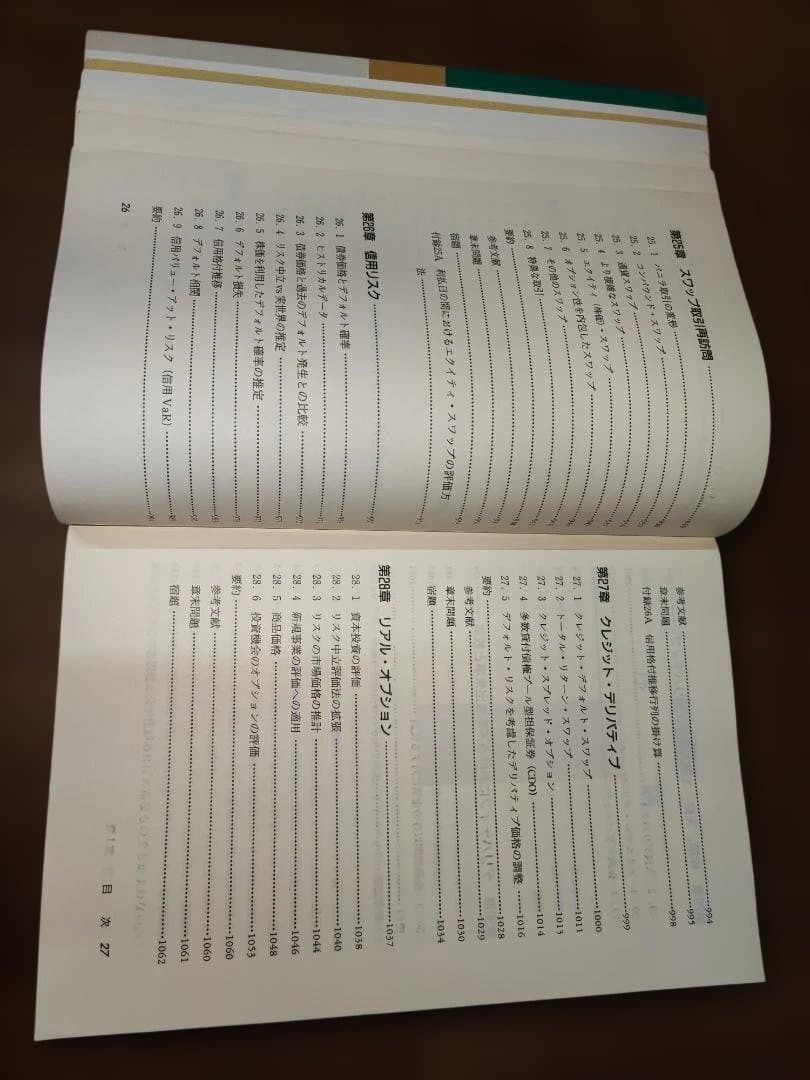 第25章 スワップ取引再訪問
25.1 バニラ取引の変形
25.2 コンパウンド・スワップ
25.3 通貨スワップ
25.4 より複雑なスワップ
25.5 エクイティ(株価)・スワップ
25.6 オプション性を内包したスワップ
25.7 その他のスワップ
25.8 特異な取引
要約
参考文献
章末問題
宿題
付録25A 利払日の間におけるエクイティ・スワップの評価方
法
第26章 信用リスク
26.1 債券価格とデフォルト確率
26.2 ヒストリカルデータ
26.3 債券価格と過去のデフォルト発生との比較
26.4 リスク中立vs実世界の推定
26.5 株価を利用したデフォルト確率の推定
26.6 デフォルト損失
26.7 信用格付推移
26.8 デフォルト相関
26.9 信用バリュー・アット・リスク(信用VaR)
要約
26
参考文献 ……994
章末問題 ……995
付録26A 信用格付推移行列の掛け算 ……998
第27章 クレジット・デリバティブ ……999
27.1 クレジット・デフォルト・スワップ ……1000
27.2 トータル・リターン・スワップ ……1011
27.3 クレジット・スプレッド・オプション ……1013
27.4 多数貸付債権プール型担保証券(CDO) ……1014
27.5 デフォルト・リスクを考慮したデリバティブ価格の調整 ……1016
要約 ……1028
参考文献 ……1029
章末問題 ……1030
宿題 ……1034
第28章 リアル・オプション ……1037
28.1 資本投資の評価 ……1038
28.2 リスク中立評価法の拡張 ……1040
28.3 リスクの市場価格の推計 ……1044
28.4 新規事業の評価への適用 ……1046
28.5 商品価格 ……1048
28.6 投資機会のオプションの評価 ……1053
要約 ……1060
参考文献 ……1060
章末問題 ……1061
宿題 ……1062
目 次 27